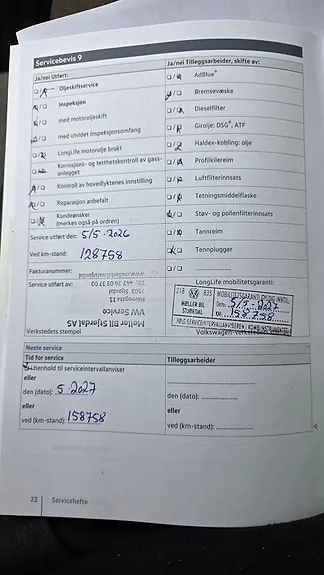 Servicebevis 9
Ja/nei Utført:
Oljeskiftservice
Inspeksjon
med motoroljeskift
med utvidet inspeksjonsomfang
LongLife motorolje brukt
Korrosjons- og tetthetskontroll av gass-
anlegget
Kontroll av hovedlyktenes innstilling
Reparasjon anbefalt
Kundeønsker
(merkes også på ordren)
Service utført den: 5/5-2026
Ved km-stand: 128758
Fakturanummer:
Service utført av:
Møller Bil Stjørdal AS
VW Service
Havnegata 11
7502 Stjørdal
Verkstedets stempel
Ja/nei Tilleggsarbeider, skifte av:
AdBlue®
Bremsevæske
Dieselfilter
Girolje: DSG®, ATF
Haldex-kobling: olje
Profilkilereim
Luftfilterinnsats
Tetningsmiddelflaske
Støv- og pollenfilterinnsats
Tannreim
Tennplugger
LongLife mobilitetsgaranti:
218 835
MØLLER BIL
STJØRDAL
MOBILITETSGARANTI GYLDIG INNTIL
Dato: 5/5-2027
KM: 158.758
FØLG SERVICEINTERVALLANVISEREN I KOMBIINSTRUMENTET
Volkswagen-verkstedets
Neste service
Tid for service
I henhold til serviceintervallanviser
eller
den (dato): 5 2027
eller
ved (km-stand): 158758
Tilleggsarbeider
den (dato):
ved (km-stand):
22 Servicehefte